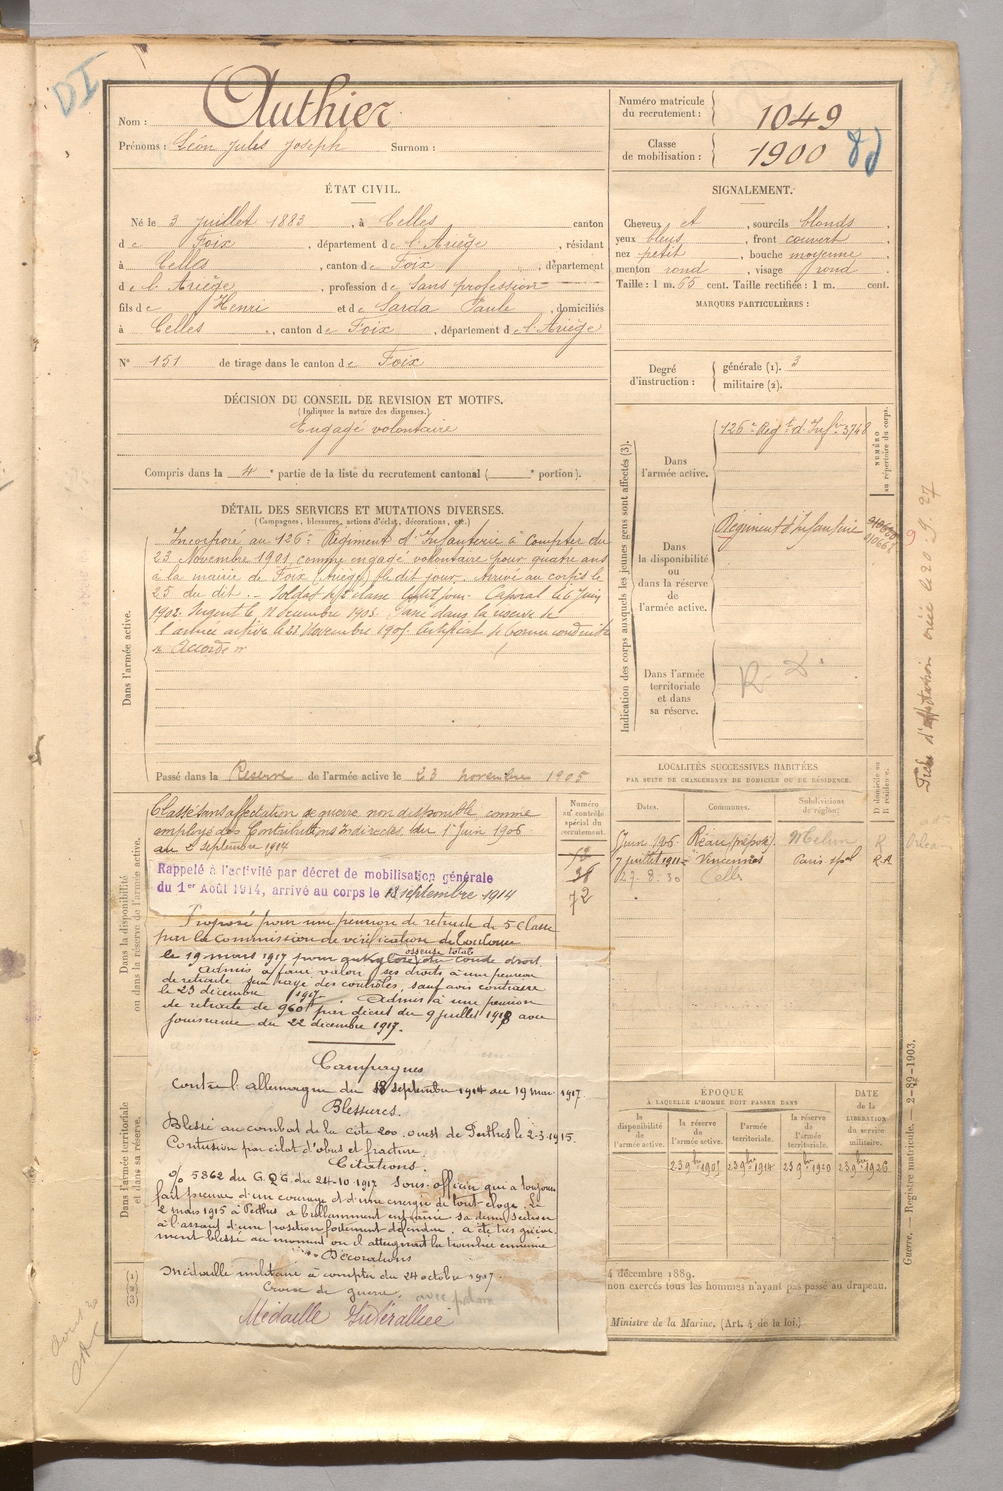 DI
Nom : Authier
Prénoms : Léon Jules Joseph Surnom :
Numéro matricule du recrutement : 1049
Classe de mobilisation : 1900
ÉTAT CIVIL.
Né le 3 Juillet 1883, à Celles canton
de Foix, département de l'Ariège, résidant
à Celles, canton de Foix, département
de l'Ariège, profession de Sans profession
fils de Henri et de Sarda Paule, domiciliés
à Celles, canton de Foix, département de l'Ariège
N° 151 de tirage dans le canton de Foix
SIGNALEMENT.
Cheveux et, sourcils blonds,
yeux bleus, front couvert
nez petit, bouche moyenne,
menton rond, visage rond.
Taille : 1 m. 65 cent. Taille rectifiée : 1 m. cent.
MARQUES PARTICULIÈRES :
Degré d'instruction : générale (1). 3
militaire (2).
DÉCISION DU CONSEIL DE REVISION ET MOTIFS.
(Indiquer la nature des dispenses.)
Engagé volontaire
Compris dans la 4e partie de la liste du recrutement cantonal ( e portion).
DÉTAIL DES SERVICES ET MUTATIONS DIVERSES.
(Campagnes, blessures, actions d'éclat, décorations, etc.)
Dans l'armée active.
Incorporé au 126e Régiment d'Infanterie à compter du
23 Novembre 1901, comme engagé volontaire pour quatre ans
à la mairie de Foix (Ariège) le dit jour. Arrivé au corps le
25 du dit. Soldat de 2e classe le dit jour. Caporal le 6 Juin
1902. Sergent le 12 décembre 1903. Passé dans la réserve de
l'armée active le 23 Novembre 1905. Certificat de bonne conduite
"Accordé"
Passé dans la Réserve de l'armée active le 23 novembre 1905
Indication des corps auxquels les jeunes gens sont affectés (3).
NUMÉRO au répertoire du corps.
Dans l'armée active.
126e Régt d'Infie 3748
Dans la disponibilité ou dans la réserve de l'armée active.
Régiment d'Infanterie
Dans l'armée territoriale et dans sa réserve.
LOCALITÉS SUCCESSIVES HABITÉES
PAR SUITE DE CHANGEMENTS DE DOMICILE OU DE RÉSIDENCE.
Dates. Communes. Subdivisions de région. D. domicile ou R. résidence.
Juin 1906 Réau (prépoé) Melun R
7 juillet 1911 Vincennes Paris R.A
27-8-30 Celles
Dans la disponibilité ou dans la réserve de l'armée active.
Numéro au contrôle spécial du recrutement.
72
Classé sans affectation de guerre non disponible comme
employé des Contributions Indirectes du 1er Juin 1906
au 2 septembre 1914
Rappelé à l'activité par décret de mobilisation générale
du 1er Août 1914, arrivé au corps le 18 septembre 1914
Proposé pour une pension de retraite de 5e Classe
par la Commission de vérification de Toulouse
le 19 mars 1917 pour ankylose osseuse totale du coude droit
Admis à faire valoir ses droits à une pension
de retraite rayé des contrôles, sauf avis contraire
le 23 décembre 1917. Admis à une pension
de retraite de 960f par décret du 9 juillet 1918 avec
jouissance du 22 décembre 1917.
Campagnes
Contre l'Allemagne du 18 septembre 1914 au 19 mars 1917
Blessures.
Blessé au combat de la côte 200, ouest de Perthes le 2-3-1915.
Contusion par éclat d'obus et fracture.
Citations.
O/ 5862 du G.Q.G. du 24-10-1917 Sous-officier qui a toujours
fait preuve d'un courage et d'une énergie de tout éloge. Le
2 mars 1915 à Perthes a brillamment entraîné sa demi section
à l'assaut d'une position fortement défendue. A été très griève-
ment blessé au moment où il atteignait la tranchée ennemie
Décorations
Médaille militaire à compter du 24 octobre 1917.
Croix de guerre. avec palme
Médaille Interalliée
Dans l'armée territoriale et dans sa réserve.
ÉPOQUE
À LAQUELLE L'HOMME DOIT PASSER DANS
la disponibilité de l'armée active. la réserve de l'armée active. l'armée territoriale. la réserve de l'armée territoriale. DATE de la LIBÉRATION du service militaire.
23 9bre 1905 23 9bre 1914 23 9bre 1920 23 9bre 1926
(1)
(2)
(3)
4 décembre 1889.
non exercés tous les hommes n'ayant pas passé au drapeau.
Ministre de la Marine. (Art. 4 de la loi.)
Guerre. — Registre matricule. — 2-89-1903.